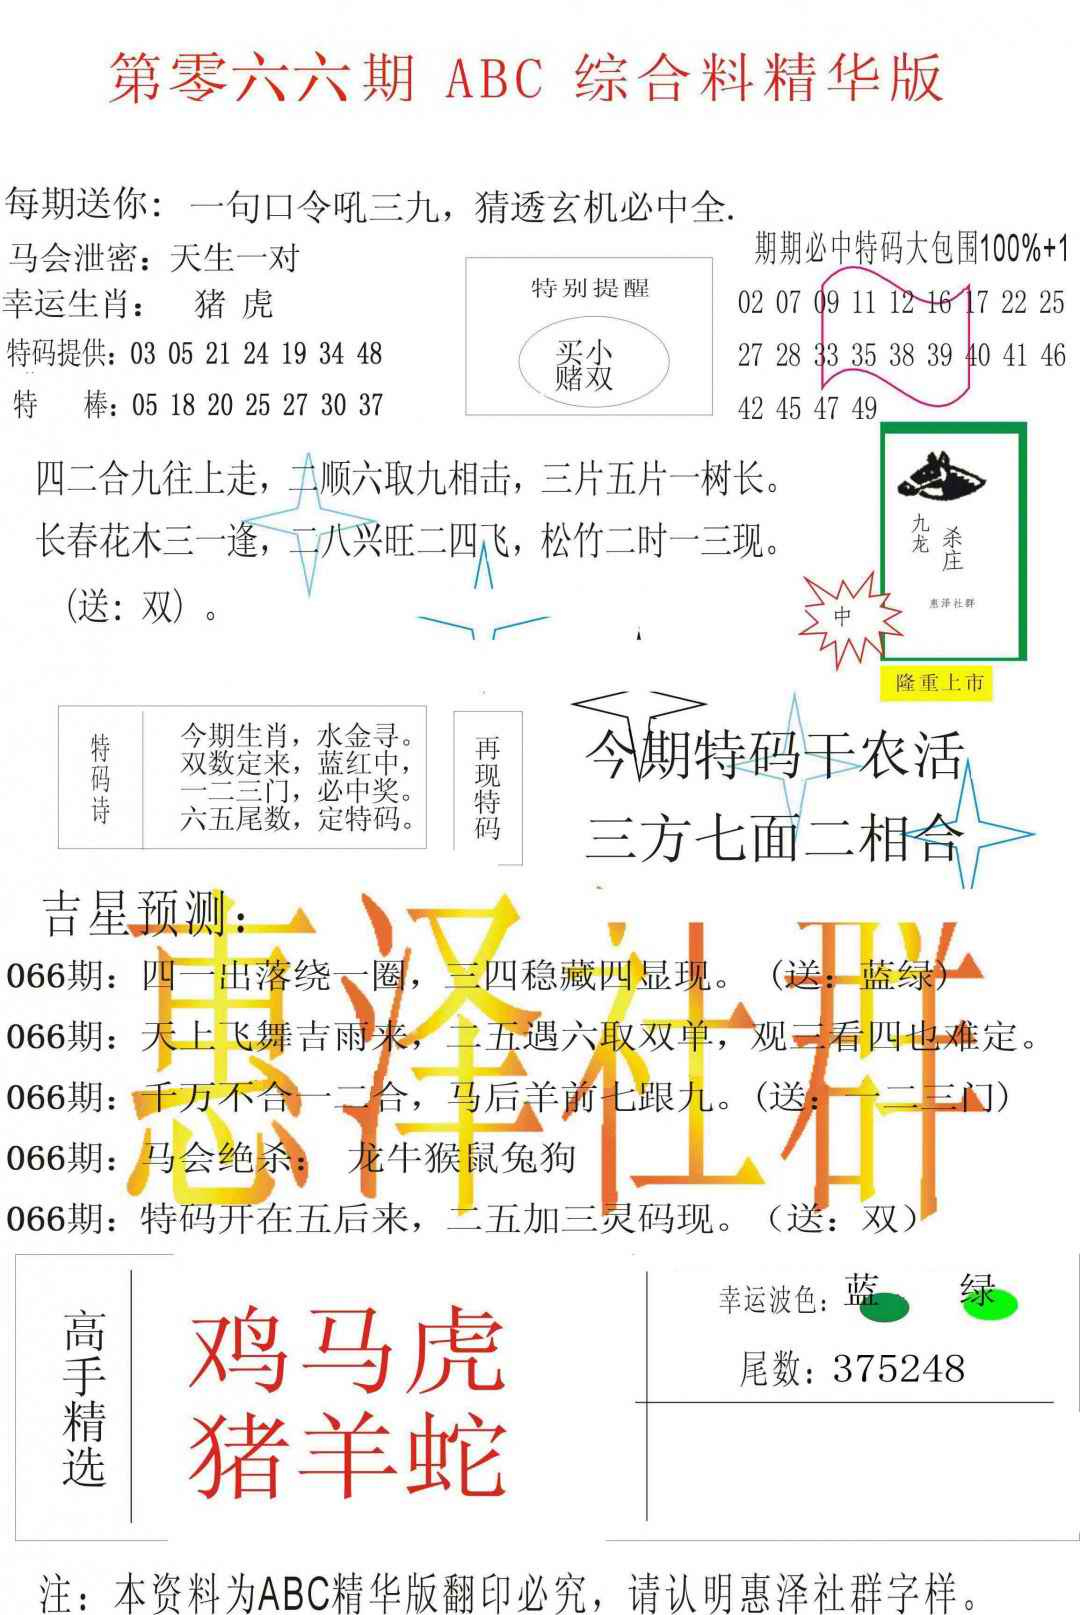 第零六六期 ABC 综合料精华版
每期送你: 一句口令吼三九，猜透玄机必中全.
马会泄密：天生一对
幸运生肖： 猪 虎
特码提供：03 05 21 24 19 34 48
特 棒：05 18 20 25 27 30 37
特别提醒
买小
赌双
期期必中特码大包围100%+1
02 07 09 11 12 16 17 22 25
27 28 33 35 38 39 40 41 46
42 45 47 49
四二合九往上走，二顺六取九相击，三片五片一树长。
长春花木三一逢，二八兴旺二四飞，松竹二时一三现。
（送：双）。
九龙
杀庄
惠泽社群
中
隆重上市
特码诗
今期生肖，水金寻。
双数定来，蓝红中，
一二三门，必中奖。
六五尾数，定特码。
再现特码
今期特码干农活
三方七面二相合
惠泽社群
吉星预测：
066期：四一出落绕一圈，三四稳藏四显现。（送：蓝绿）
066期：天上飞舞吉雨来，二五遇六取双单，观三看四也难定。
066期：千万不合一二合，马后羊前七跟九。(送：一二三门)
066期：马会绝杀： 龙牛猴鼠兔狗
066期：特码开在五后来，二五加三灵码现。（送：双）
高手精选
鸡马虎
猪羊蛇
幸运波色：蓝 绿
尾数：375248
注：本资料为ABC精华版翻印必究，请认明惠泽社群字样。